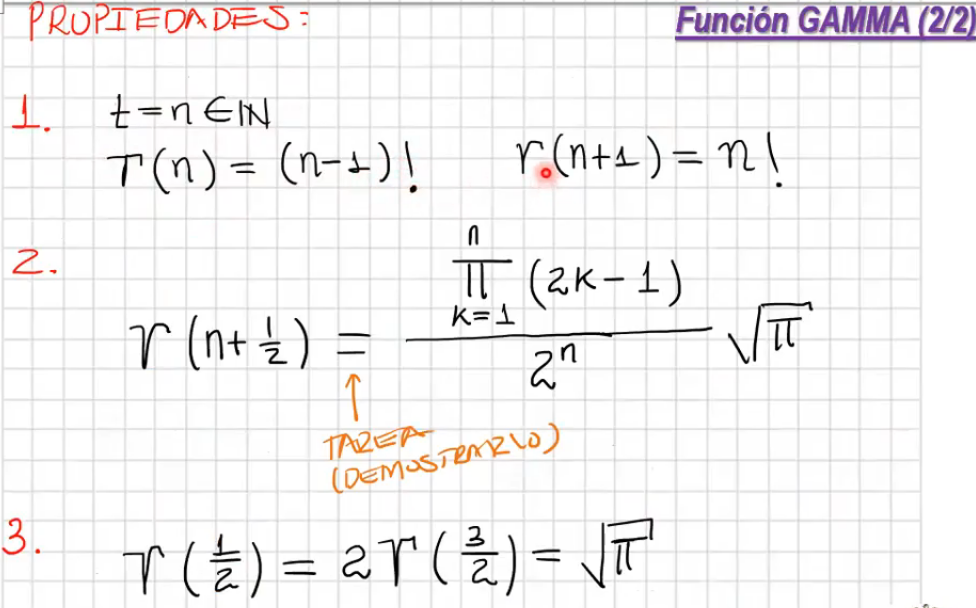 PROPIEDADES:
Función GAMMA (2/2)
1. t = n ∈ ℕ
Γ(n) = (n-1)!    Γ(n+1) = n!
2. Γ(n+½) = \frac{\prod_{k=1}^{n} (2k-1)}{2^n} √π
↑
TAREA
(DEMOSTRARLO)
3. Γ(1/2) = 2Γ(3/2) = √π